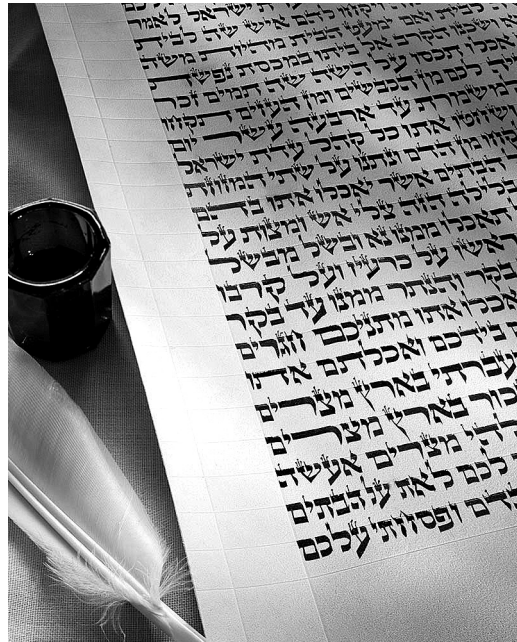 ישראל לאמר
להם איש שה לבית
מהיות משה
הקרב אל ביתו במכסת נפשת
תכסו על השה שה תמים זכר
לכם מן הכבשים ומן העזים תקחו
למשמרת עד ארבעה עשר יום
ושחטו אתו כל קהל עדת ישראל
מן הדם ונתנו על שתי המזוזת
הבתים אשר יאכלו אתו בהם
בלילה הזה צלי אש ומצות על
תאכלו ממנו נא ובשל מבשל
אש על כרעיו ועל קרבו
בקר והנתר ממנו עד בקר
תאכלו אתו מתניכם חגרים
בידכם ואכלתם אתו
ועברתי בארץ מצרים
בכור בארץ מצרים
אלהי מצרים אעשה
לכם לאת על הבתים
הדם ופסחתי עלכם